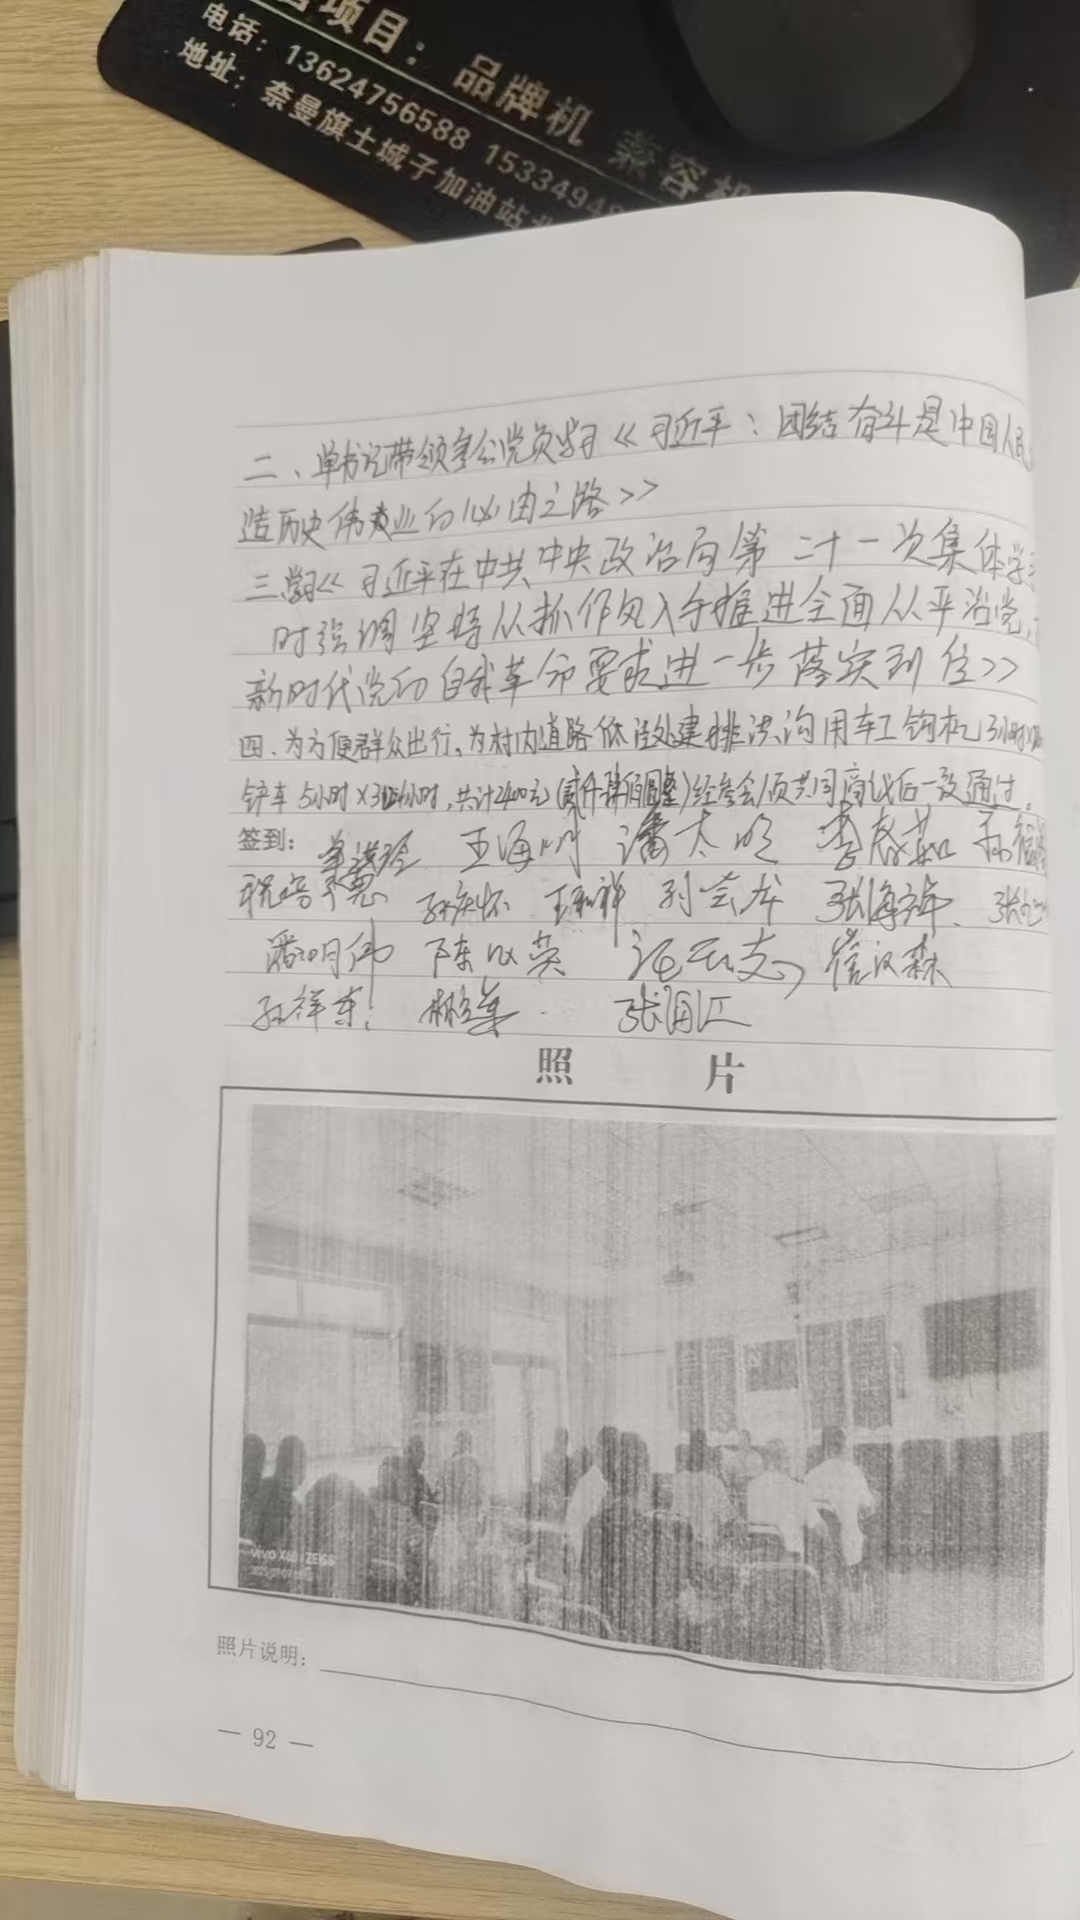 项目：品牌机 兼容机
电话：13624756588 1533494
地址：奈曼旗土城子加油站
二、单书记带领参会党员学习<<习近平：团结奋斗是中国人民
造历史伟业的必由之路>>
三、学习<<习近平在中共中央政治局第二十一次集体学习
时强调坚持从抓作风入手推进全面从严治党，
新时代党的自我革命要求进一步落实到位>>
四、为方便群众出行，为村内道路低洼处建排洪沟用车工钩机
铲车5小时×小时，共计2400元（贰仟肆佰圆整）经参会人员共同商议后一致通过。
签到： 王海 潘太明
孙庆怀 王和祥 刘会龙 张海
潘明伟 陈 英 汪云志 崔汉森
孙祥东 张国江
照 片
vivo X60 | ZEISS
照片说明：
— 92 —